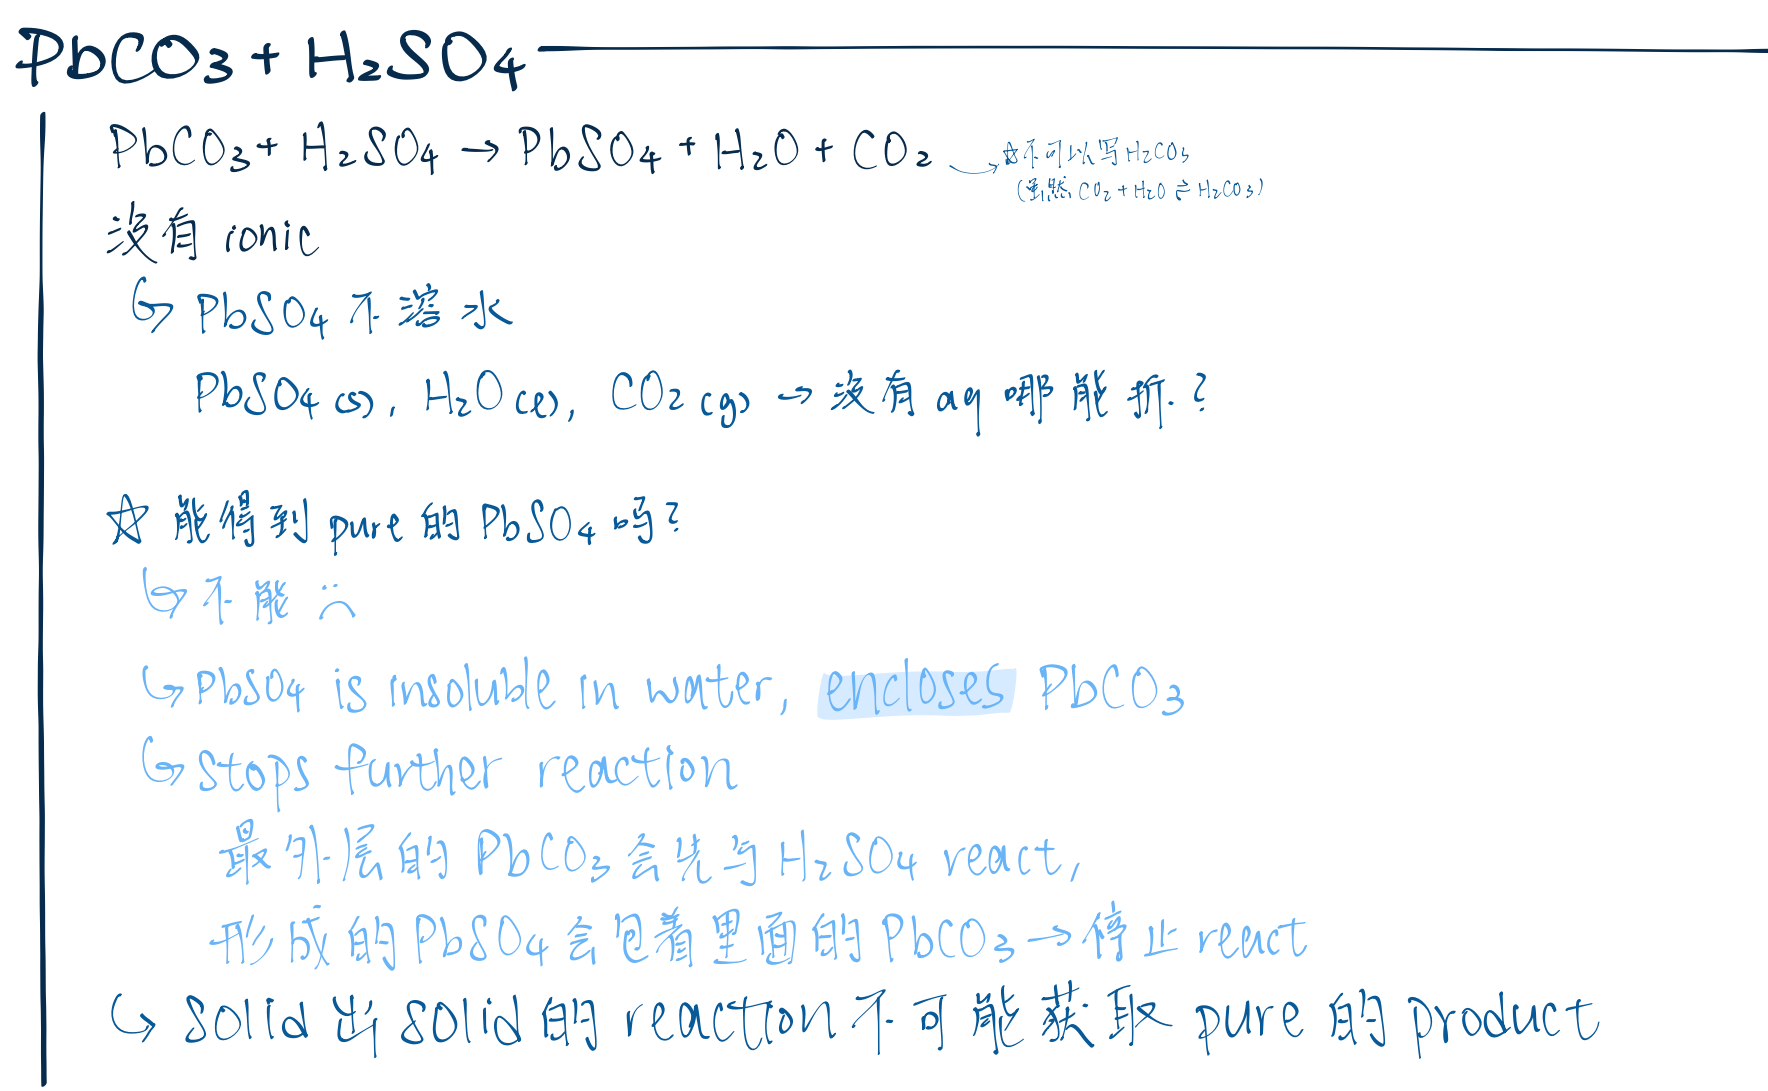 PbCO₃ + H₂SO₄
PbCO₃ + H₂SO₄ → PbSO₄ + H₂O + CO₂
☆不可以写H₂CO₃
(虽然 CO₂ + H₂O ⇌ H₂CO₃)
没有 ionic
↳ PbSO₄ 不溶水
PbSO₄(s), H₂O(ℓ), CO₂(g) → 没有 aq 哪能折?
☆ 能得到 pure 的 PbSO₄ 吗?
↳ 不能 :(
↳ PbSO₄ is insoluble in water, encloses PbCO₃
↳ Stops further reaction
最外层的 PbCO₃ 会先与 H₂SO₄ react,
形成的 PbSO₄ 会包着里面的 PbCO₃ → 停止 react
↳ solid 出 solid 的 reaction 不可能获取 pure 的 product